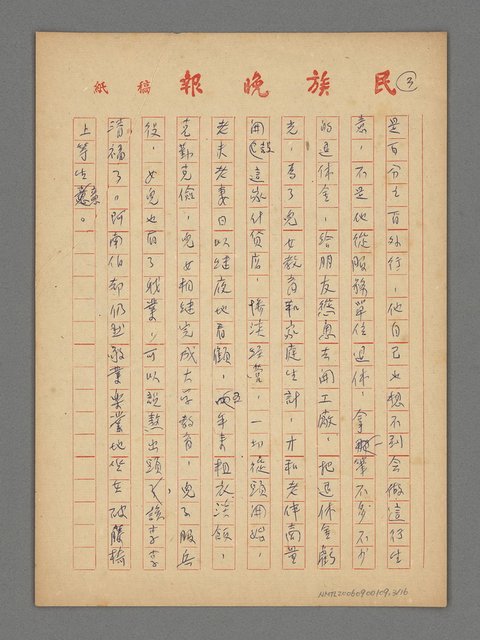 民族晚報 稿紙
3
是百分之百外行,他自己也想不到會做這行生
意,不是他從服務單位退休,拿一筆不多不少
的退休金,給朋友慫恿去開工廠,把退休金虧
光,為了兒女教育和家庭生計,才和老伴商量
開設這家什貨店,慘淡經營,一切從頭開始,
老夫老妻日以繼夜地看顧,兩年來粗衣淡飯,
克勤克儉,兒女相繼完成大學教育,兒子服兵
役,女兒也有了職業,可以說熬出頭了,該享享
清福了。阿南伯卻仍然敬業樂業地坐在破籐椅
上等生意。
NMTL20060900109.3/16